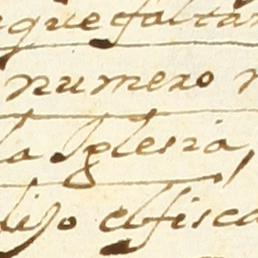 que faltan
numero
la Iglesia,
dijo el fisca